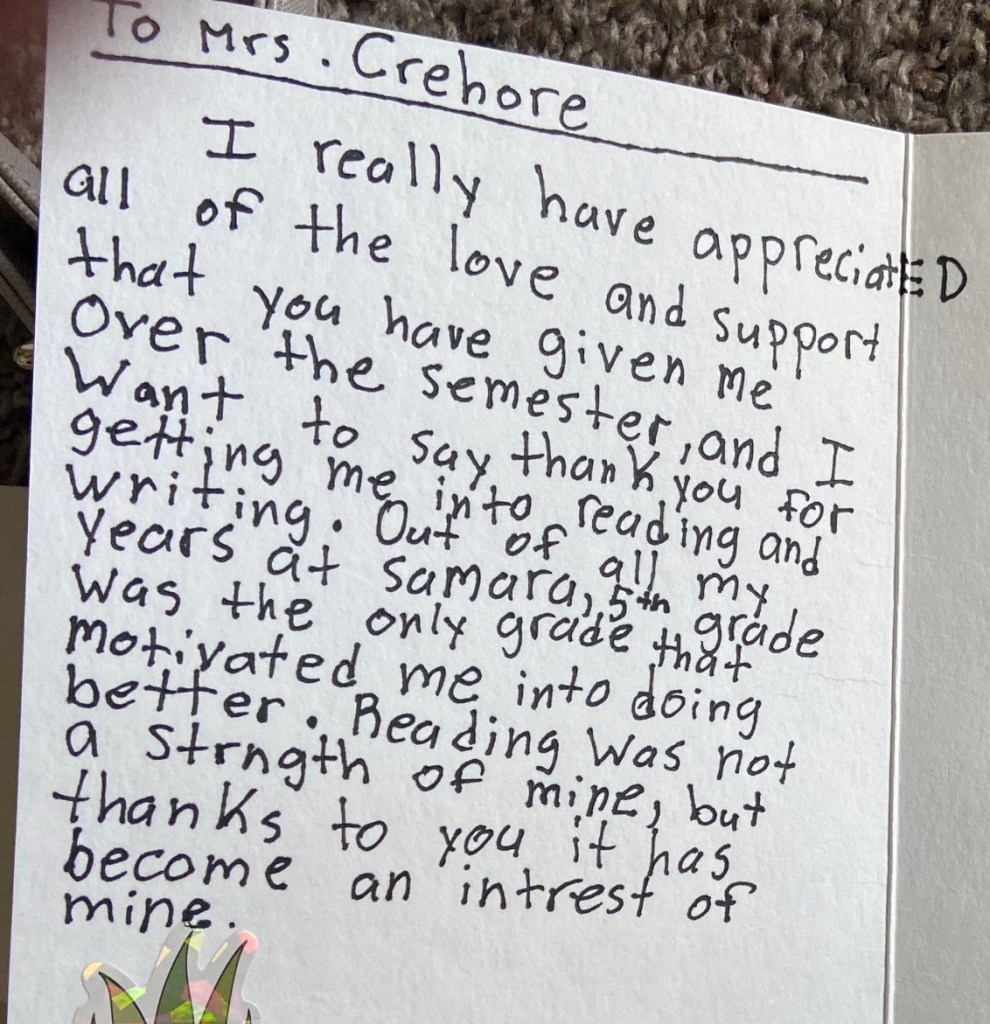 To Mrs. Crehore
I really have appreciatED
all of the love and support
that you have given me
Over the semester, and I
Want to say thank you for
getting me into reading and
writing. Out of all my
Years at samara, 5th grade
was the only grade that
motivated me into doing
better. Reading was not
a strngth of mine, but
thanks to you it has
become an intrest of
mine.